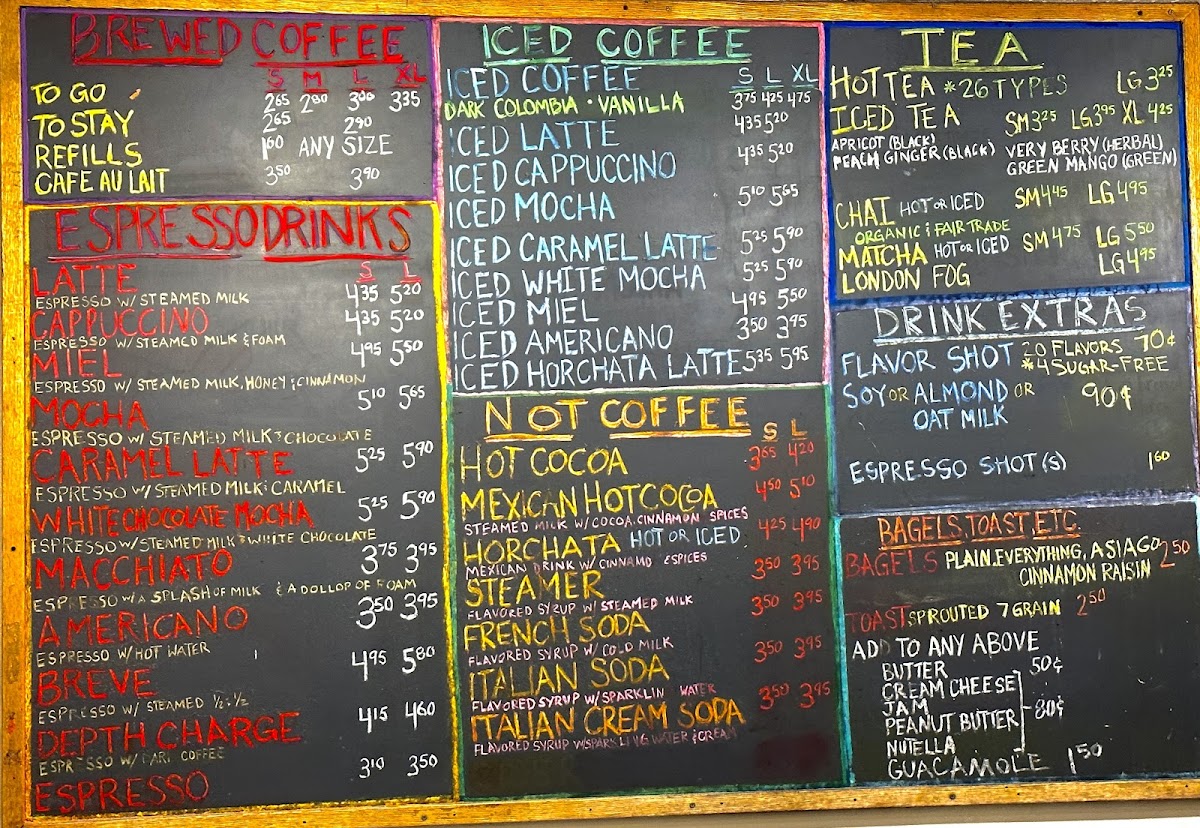 BREWED COFFEE
S M L XL
TO GO 2.65 2.80 3.00 3.35
TO STAY 2.65 2.90
REFILLS 1.60 ANY SIZE
CAFE AU LAIT 3.50 3.90
ESPRESSO DRINKS
S L
LATTE 4.35 5.20
ESPRESSO W/ STEAMED MILK
CAPPUCCINO 4.35 5.20
ESPRESSO W/ STEAMED MILK & FOAM
MIEL 4.95 5.50
ESPRESSO W/ STEAMED MILK, HONEY & CINNAMON
MOCHA 5.10 5.65
ESPRESSO W/ STEAMED MILK & CHOCOLATE
CARAMEL LATTE 5.25 5.90
ESPRESSO W/ STEAMED MILK & CARAMEL
WHITE CHOCOLATE MOCHA 5.25 5.90
ESPRESSO W/ STEAMED MILK & WHITE CHOCOLATE
MACCHIATO 3.75 3.95
ESPRESSO W/ A SPLASH OF MILK & A DOLLOP OF FOAM
AMERICANO 3.50 3.95
ESPRESSO W/ HOT WATER
BREVE 4.95 5.80
ESPRESSO W/ STEAMED ½ & ½
DEPTH CHARGE 4.15 4.60
ESPRESSO W/ DARK COFFEE
ESPRESSO 3.10 3.50
ICED COFFEE
S L XL
ICED COFFEE 3.75 4.25 4.75
DARK COLOMBIA · VANILLA
ICED LATTE 4.35 5.20
ICED CAPPUCCINO 4.35 5.20
ICED MOCHA 5.10 5.65
ICED CARAMEL LATTE 5.25 5.90
ICED WHITE MOCHA 5.25 5.90
ICED MIEL 4.95 5.50
ICED AMERICANO 3.50 3.95
ICED HORCHATA LATTE 5.35 5.95
NOT COFFEE
S L
HOT COCOA 3.65 4.20
MEXICAN HOT COCOA 4.50 5.10
STEAMED MILK W/ COCOA, CINNAMON SPICES
HORCHATA HOT OR ICED 4.25 4.90
MEXICAN DRINK W/ CINNAMO & SPICES
STEAMER 3.50 3.95
FLAVORED SYRUP W/ STEAMED MILK
FRENCH SODA 3.50 3.95
FLAVORED SYRUP W/ COLD MILK
ITALIAN SODA 3.50 3.95
FLAVORED SYRUP W/ SPARKLIN WATER
ITALIAN CREAM SODA 3.50 3.95
FLAVORED SYRUP W/SPARKLING WATER & CREAM
TEA
HOT TEA *26 TYPES LG 3.25
ICED TEA SM 3.25 LG 3.95 XL 4.25
APRICOT (BLACK) VERY BERRY (HERBAL)
PEACH GINGER (BLACK) GREEN MANGO (GREEN)
CHAI HOT OR ICED SM 4.45 LG 4.95
ORGANIC & FAIR TRADE
MATCHA HOT OR ICED SM 4.75 LG 5.50
LONDON FOG LG 4.95
DRINK EXTRAS
FLAVOR SHOT 20 FLAVORS 70¢
*4 SUGAR-FREE
SOY OR ALMOND OR 90¢
OAT MILK
ESPRESSO SHOT(S) 1.60
BAGELS, TOAST, ETC.
BAGELS PLAIN, EVERYTHING, ASIAGO 2.50
CINNAMON RAISIN
TOAST SPROUTED 7 GRAIN 2.50
ADD TO ANY ABOVE
BUTTER 50¢
CREAM CHEESE
JAM
PEANUT BUTTER 80¢
NUTELLA
GUACAMOLE 1.50